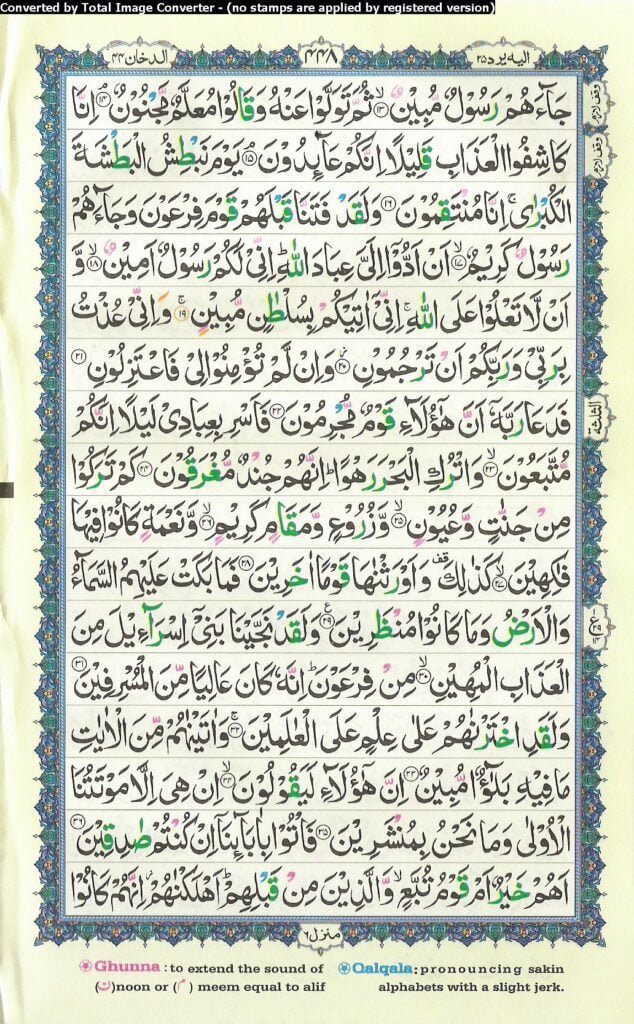 Converted by Total Image Converter - (no stamps are applied by registered version)
الدخان ٤٤
٤٤٨
اليه يرد ٢٥
جَآءَهُمْ رَسُوْلٌ مُّبِيْنٌ ۙ﴿۱۳﴾ ثُمَّ تَوَلَّوْا عَنْهُ وَقَالُوْا مُعَلَّمٌ مَّجْنُوْنٌ ۘ﴿۱۴﴾ اِنَّا
كَاشِفُوا الْعَذَابِ قَلِيْلًا اِنَّكُمْ عَآئِدُوْنَ ۘ﴿۱۵﴾ يَوْمَ نَبْطِشُ الْبَطْشَةَ
الْكُبْرٰى ۚ اِنَّا مُنْتَقِمُوْنَ ﴿۱۶﴾ وَلَقَدْ فَتَنَّا قَبْلَهُمْ قَوْمَ فِرْعَوْنَ وَجَآءَهُمْ
رَسُوْلٌ كَرِيْمٌ ۙ﴿۱۷﴾ اَنْ اَدُّوْۤا اِلَىَّ عِبَادَ اللّٰهِ ؕ اِنِّىْ لَكُمْ رَسُوْلٌ اَمِيْنٌ ۙ﴿۱۸﴾ وَّ
اَنْ لَّا تَعْلُوْا عَلَى اللّٰهِ ۚ اِنِّىْۤ اٰتِيْكُمْ بِسُلْطٰنٍ مُّبِيْنٍ ۚ﴿۱۹﴾ وَاِنِّىْ عُذْتُ
بِرَبِّىْ وَرَبِّكُمْ اَنْ تَرْجُمُوْنِ ﴿۲۰﴾ وَاِنْ لَّمْ تُؤْمِنُوْا لِىْ فَاعْتَزِلُوْنِ ﴿۲۱﴾
فَدَعَا رَبَّهٗۤ اَنَّ هٰٓؤُلَآءِ قَوْمٌ مُّجْرِمُوْنَ ﴿۲۲﴾ فَاَسْرِ بِعِبَادِىْ لَيْلًا اِنَّكُمْ
مُّتَّبَعُوْنَ ۙ﴿۲۳﴾ وَاتْرُكِ الْبَحْرَ رَهْوًا ؕ اِنَّهُمْ جُنْدٌ مُّغْرَقُوْنَ ﴿۲۴﴾ كَمْ تَرَكُوْا
مِنْ جَنّٰتٍ وَّعُيُوْنٍ ۙ﴿۲۵﴾ وَّزُرُوْعٍ وَّمَقَامٍ كَرِيْمٍ ۙ﴿۲۶﴾ وَّنَعْمَةٍ كَانُوْا فِيْهَا
فٰكِهِيْنَ ۙ﴿۲۷﴾ كَذٰلِكَ ۟ وَاَوْرَثْنٰهَا قَوْمًا اٰخَرِيْنَ ﴿۲۸﴾ فَمَا بَكَتْ عَلَيْهِمُ السَّمَآءُ
وَالْاَرْضُ وَمَا كَانُوْا مُنْظَرِيْنَ ﴿۲۹﴾ وَلَقَدْ نَجَّيْنَا بَنِىْۤ اِسْرَآءِيْلَ مِنَ
الْعَذَابِ الْمُهِيْنِ ۙ﴿۳۰﴾ مِنْ فِرْعَوْنَ ؕ اِنَّهٗ كَانَ عَالِيًا مِّنَ الْمُسْرِفِيْنَ ﴿۳۱﴾
وَلَقَدِ اخْتَرْنٰهُمْ عَلٰى عِلْمٍ عَلَى الْعٰلَمِيْنَ ۚ﴿۳۲﴾ وَاٰتَيْنٰهُمْ مِّنَ الْاٰيٰتِ
مَا فِيْهِ بَلٰٓؤٌا مُّبِيْنٌ ﴿۳۳﴾ اِنَّ هٰٓؤُلَآءِ لَيَقُوْلُوْنَ ۙ﴿۳۴﴾ اِنْ هِىَ اِلَّا مَوْتَتُنَا
الْاُوْلٰى وَمَا نَحْنُ بِمُنْشَرِيْنَ ﴿۳۵﴾ فَاْتُوْا بِاٰبَآئِنَاۤ اِنْ كُنْتُمْ صٰدِقِيْنَ ﴿۳۶﴾
اَهُمْ خَيْرٌ اَمْ قَوْمُ تُبَّعٍ ۙ وَّالَّذِيْنَ مِنْ قَبْلِهِمْ ؕ اَهْلَكْنٰهُمْ ؗ اِنَّهُمْ كَانُوْا
وقف لازم
وقف لازم
الثلثة
منزل ٦
Ghunna : to extend the sound of (ن)noon or (م) meem equal to alif
Qalqala: pronouncing sakin alphabets with a slight jerk.